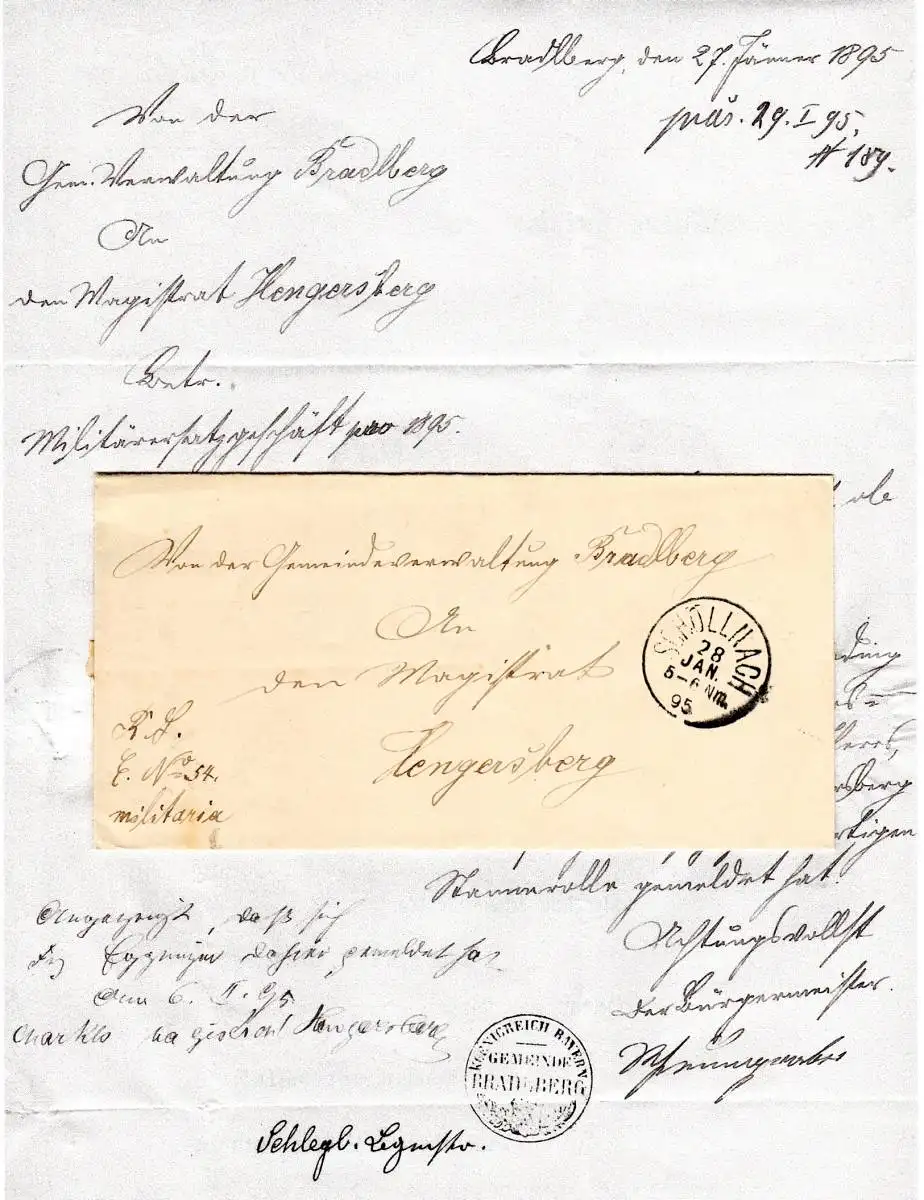 Bradlberg, den 27. Jänner 1895
präs. 29. I 95.
№ 189.
Von der
Gem. Verwaltung Bradlberg
An
den Magistrat Hengersberg
Betr.
Militärersatzgeschäft pro 1895.
ob
Von der Gemeindeverwaltung Bradlberg
An
den Magistrat
Hengersberg
R. S.
E. No 54.
militaria
SCHÖLLNACH
28
JAN.
5-6 Nm.
95
Stammrolle gemeldet hat.
Achtungsvollst
Der Bürgermeister.
Angezeigt, daß sich
dahier gemeldet hat
am 6. II. 95
Markts Magistrat Hengersberg
KOENIGREICH BAYERN
GEMEINDE
BRADLBERG